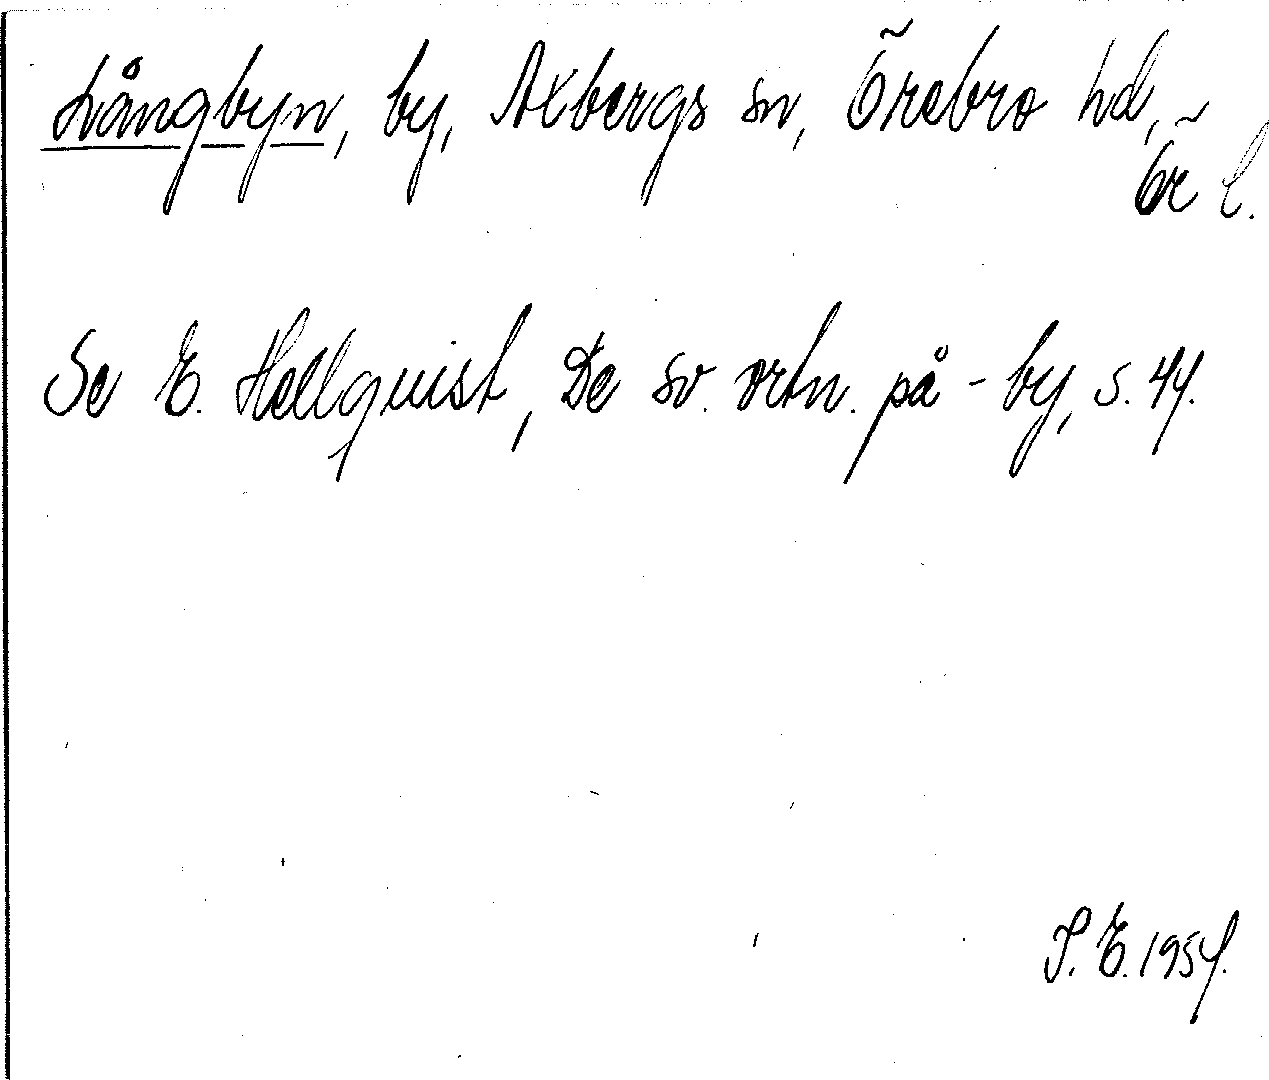 Långbyn, by, Axbergs sn, Örebro hd,
Ör l.
Se E. Hellquist, De sv. ortn. på -by, s. 44.
P. E. 1954.